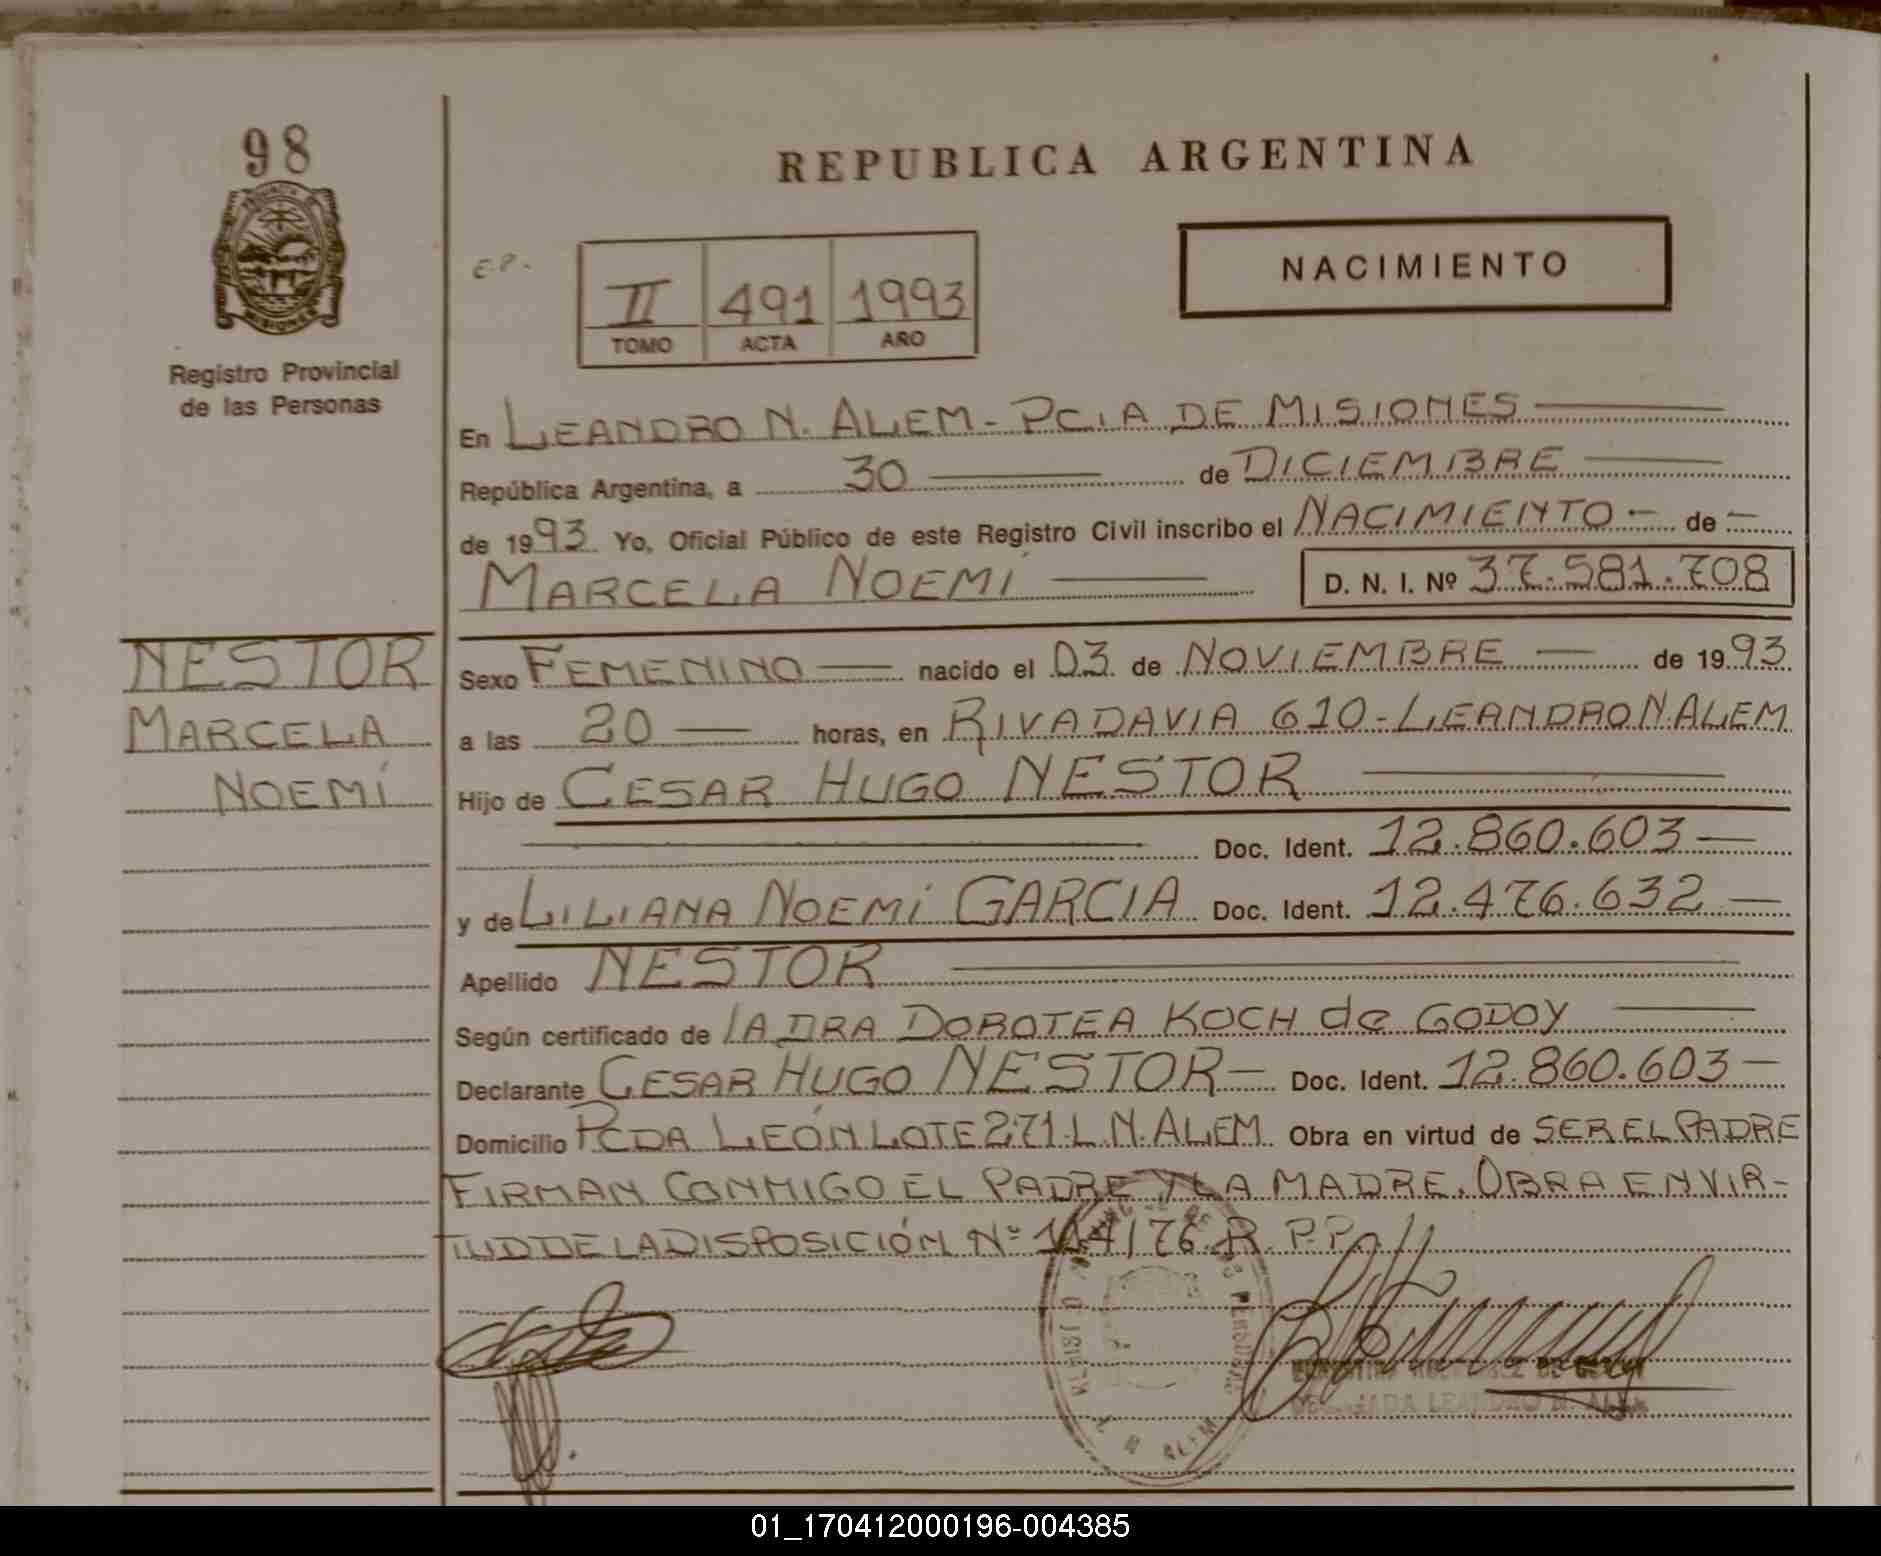 98
MISIONES
Registro Provincial
de las Personas
REPUBLICA ARGENTINA
NACIMIENTO
E.P.
II 491 1993
TOMO ACTA AÑO
En LEANDRO N. ALEM - PCIA DE MISIONES
República Argentina, a 30 de DICIEMBRE
de 1993 Yo, Oficial Público de este Registro Civil inscribo el NACIMIENTO - de -
MARCELA NOEMÍ D. N. I. Nº 37.581.708
NESTOR
MARCELA
NOEMÍ
Sexo FEMENINO nacido el 03 de NOVIEMBRE de 1993
a las 20 horas, en RIVADAVIA 610 - LEANDRO N. ALEM
Hijo de CESAR HUGO NESTOR
Doc. Ident. 12.860.603
y de LILIANA NOEMÍ GARCIA Doc. Ident. 12.476.632
Apellido NESTOR
Según certificado de LA DRA DOROTEA KOCH de GODOY
Declarante CESAR HUGO NESTOR - Doc. Ident. 12.860.603
Domicilio PCDA LEÓN LOTE 271 L.N. ALEM Obra en virtud de SER EL PADRE
FIRMAN CONMIGO EL PADRE Y LA MADRE. OBRA EN VIR-
TUD DE LA DISPOSICIÓN Nº 114/76 R.P.P.
L N ALEM
LEANDRO N. ALEM
01_170412000196-004385